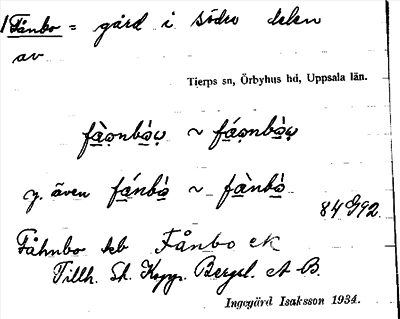 1 Fånbo = gård i södra delen
av
Tierps sn, Örbyhus hd, Uppsala län.
fàọnbọ̀ụ ~ fáọnbọ̀ụ
y. även fánbò ~ fànbò
84 G92
Fåhnbo jeb Fånbo eK
Tillh. St. Koppr. Bergsl. A-B.
Ingegärd Isaksson 1934.